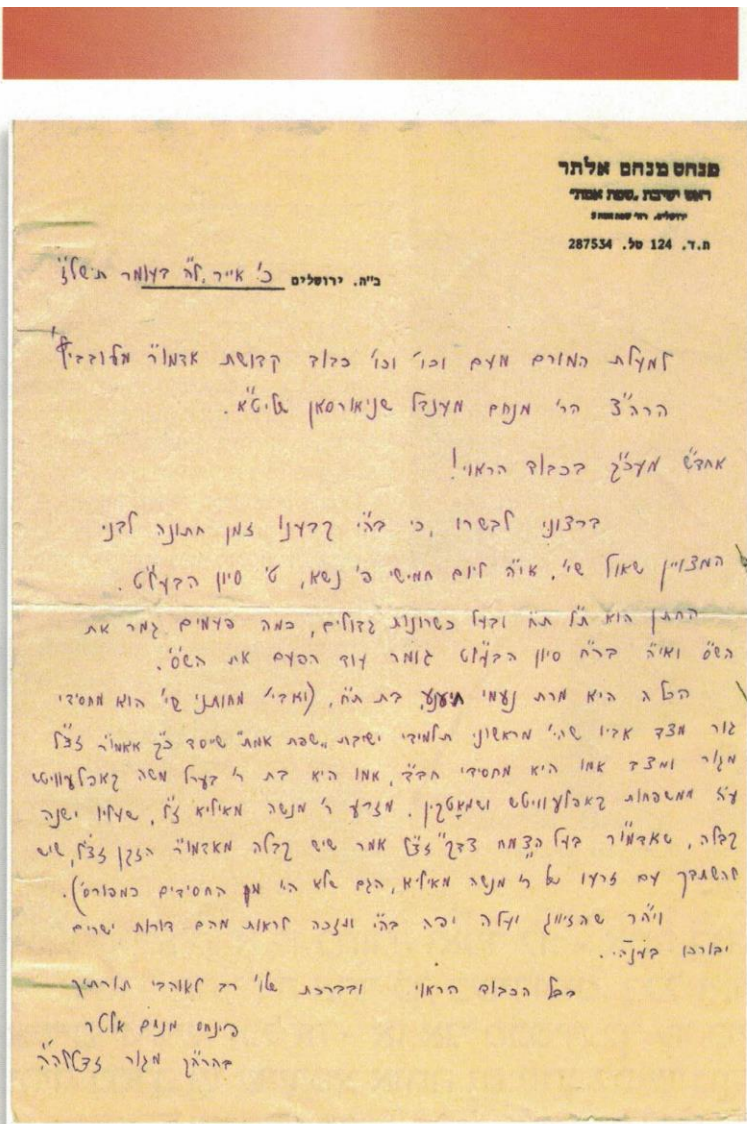 פנחס מנחם אלתר
ראש ישיבת „שפת אמת"
ירושלים, רח' שפת אמת 5
ת.ד. 124 טל. 287534
ב"ה. ירושלים כ' אייר, ל"ה בעומר תשל"ז
למעלת המורם מעם וכו' וכו' כבוד קדושת אדמו"ר מלובביץ'
הרה"צ הר' מנחם מענדל שניאורסאן שליט"א.
אחדש"ה מעכ"ק בכבוד הראוי!
ברצוני לבשרו, כי בה"י קבענו זמן חתונה לבני
המצויין שאול שי', אי"ה ליום חמישי פ' נשא, ט' סיון הבעל"ט.
החתן הוא ת"ל ת"ח ובעל כשרונות גדולים, כמה פעמים גמר את
הש"ס ואי"ה בר"ח סיון הבעל"ט גומר עוד הפעם את הש"ס.
הכלה היא מרת נעמי תי' בת ת"ח, (ואבי' מחותני שי' הוא מחסידי
גור מצד אביו שהי' מראשוני תלמידי ישיבת „שפת אמת" שיסד כ"ק אאמו"ר זצ"ל
מגור ומצד אמו היא מחסידי חב"ד, אמו היא בת ר' בערל משה קאפלעוויטש
ע"ה ממשפחות קאפלעוויטש ושמאטקין. מזרע ר' מנשה מאיליא ז"ל, שעליו ישנה
קבלה, שאדמו"ר בעל הצמח צדק" זצ"ל אמר שיש קבלה מאדמו"ר הזקן זצ"ל, שיש
להשתדך עם זרעו של ר' מנשה מאיליא, הגם שלא הי' מן החסידים כמפורס').
ויה"ר שהזיווג יעלה יפה בה"י ונזכה לראות מהם דורות ישרים
יבורכו בעגה"י.
בכל הכבוד הראוי ובברכת שלו' רב לאוהבי תורתיך
פינחס מנחם אלטר
בהרה"ק מגור זצללה"ה